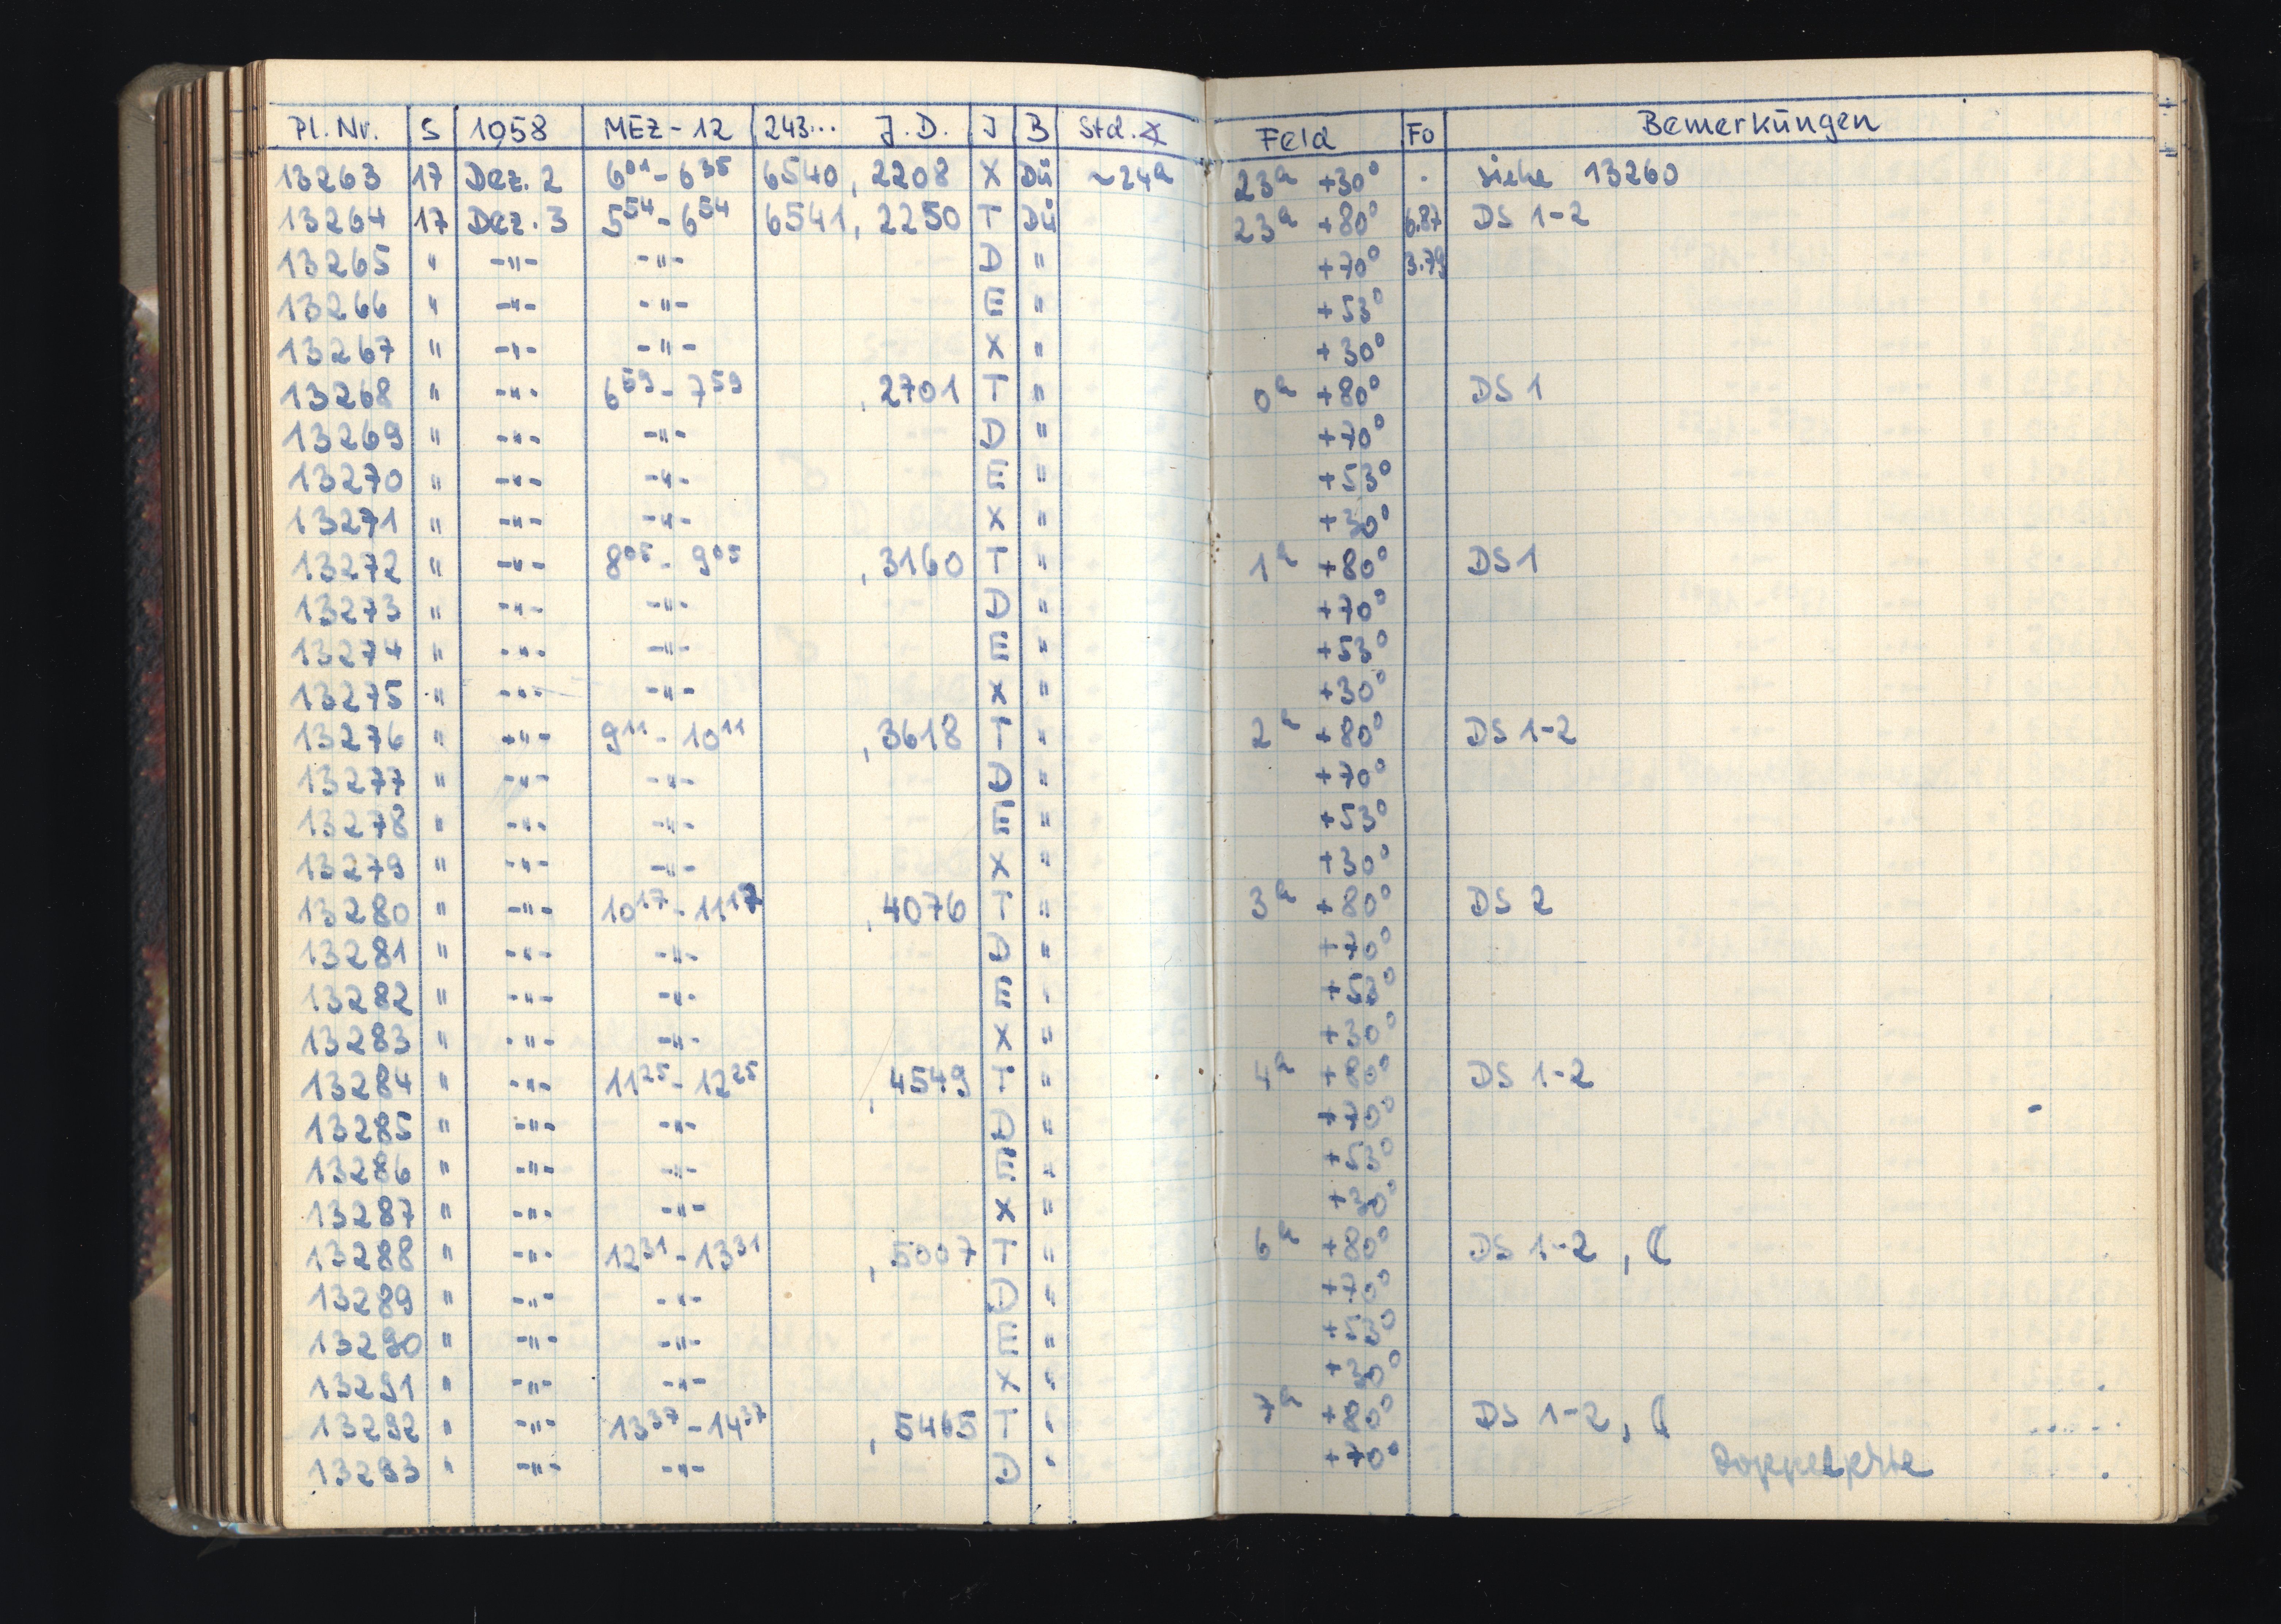 Pl. Nr. S 1958 MEZ-12 243... J.D. J B Std.∢ Feld Fo Bemerkungen
13263 17 Dez. 2 6⁰¹-6³⁵ 6540, 2208 X Dü ~24ʰ 23ʰ +30° . siehe 13260
13264 17 Dez. 3 5⁵⁴-6⁵⁴ 6541, 2250 T Dü 23ʰ +80° 6.87 DS 1-2
13265 " -"- -"- D " +70° 3.79
13266 " -"- -"- E " +53°
13267 " -"- -"- X " +30°
13268 " -"- 6⁵⁹-7⁵⁹ , 2701 T " 0ʰ +80° DS 1
13269 " -"- -"- D " +70°
13270 " -"- -"- E " +53°
13271 " -"- -"- X " +30°
13272 " -"- 8⁰⁵-9⁰⁵ , 3160 T " 1ʰ +80° DS 1
13273 " -"- -"- D " +70°
13274 " -"- -"- E " +53°
13275 " -"- -"- X " +30°
13276 " -"- 9¹¹-10¹¹ , 3618 T " 2ʰ +80° DS 1-2
13277 " -"- -"- D " +70°
13278 " -"- -"- E " +53°
13279 " -"- -"- X " +30°
13280 " -"- 10¹⁷-11¹⁷ , 4076 T " 3ʰ +80° DS 2
13281 " -"- -"- D " +70°
13282 " -"- -"- E " +53°
13283 " -"- -"- X " +30°
13284 " -"- 11²⁵-12²⁵ , 4549 T " 4ʰ +80° DS 1-2
13285 " -"- -"- D " +70°
13286 " -"- -"- E " +53°
13287 " -"- -"- X " +30°
13288 " -"- 12³¹-13³¹ , 5007 T " 6ʰ +80° DS 1-2, ☾
13289 " -"- -"- D " +70°
13290 " -"- -"- E " +53°
13291 " -"- -"- X " +30°
13292 " -"- 13³⁷-14³⁷ , 5465 T " 7ʰ +80° DS 1-2, ☾
13293 " -"- -"- D " +70°